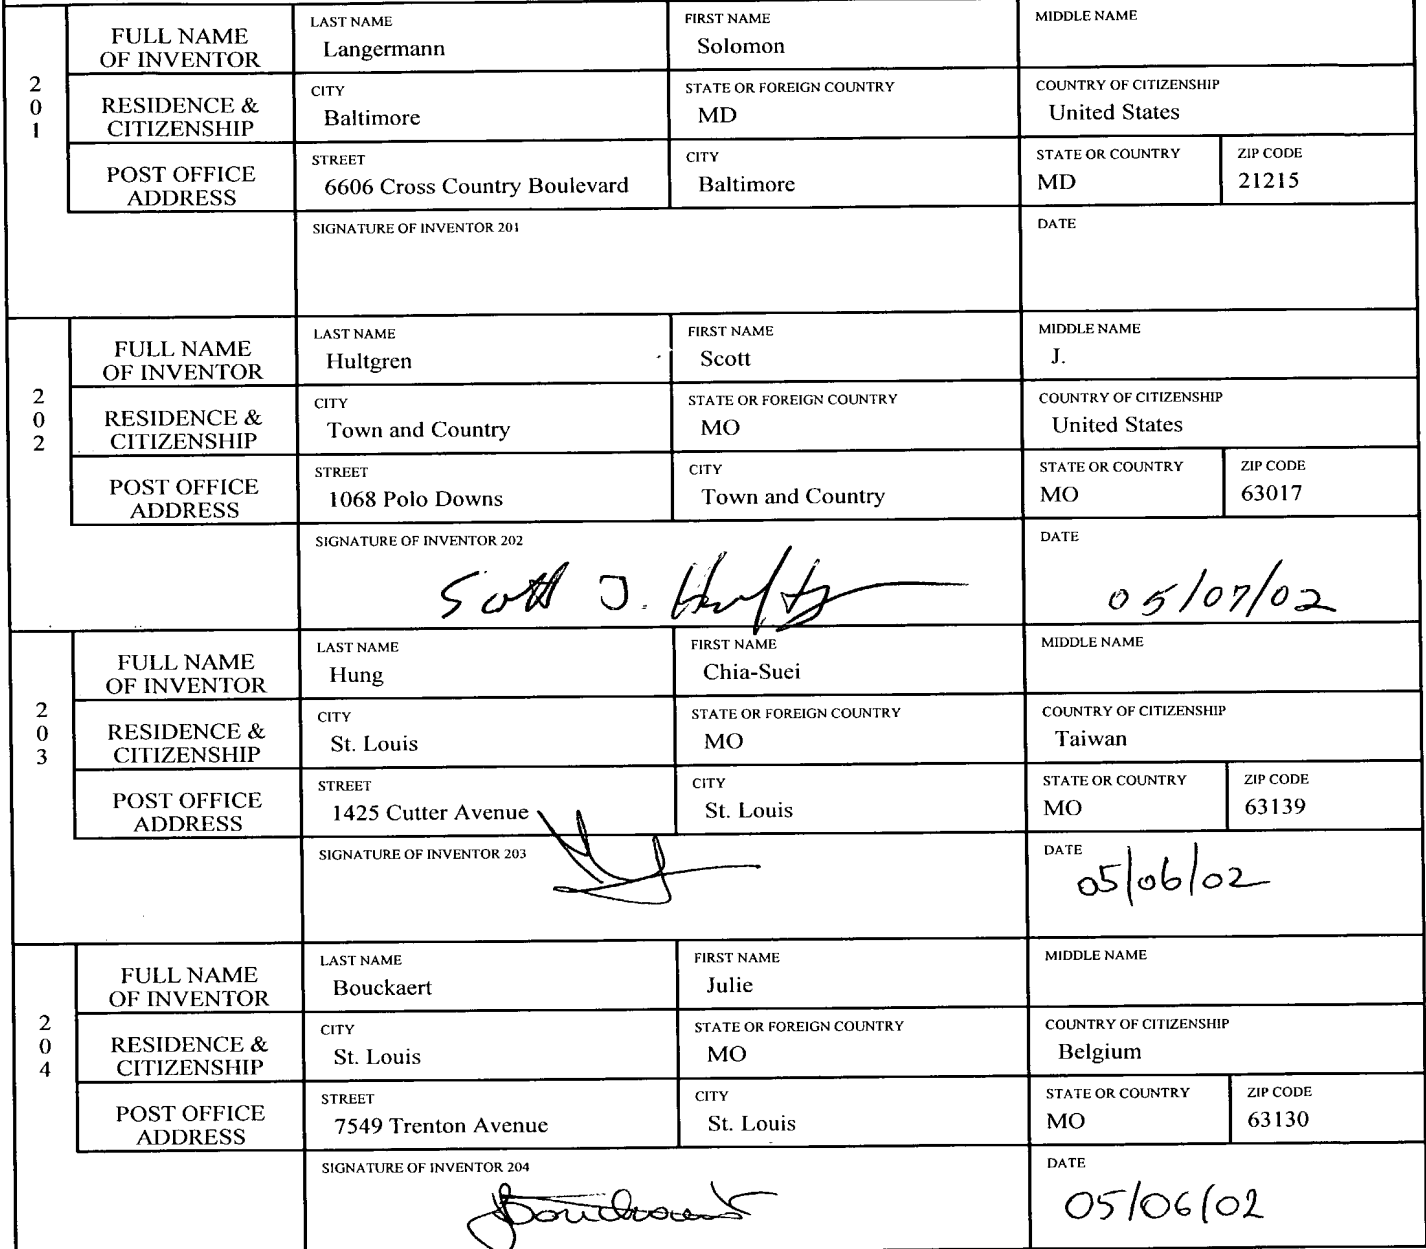 2
0
1
FULL NAME
OF INVENTOR
LAST NAME
Langermann
FIRST NAME
Solomon
MIDDLE NAME
RESIDENCE &
CITIZENSHIP
CITY
Baltimore
STATE OR FOREIGN COUNTRY
MD
COUNTRY OF CITIZENSHIP
United States
POST OFFICE
ADDRESS
STREET
6606 Cross Country Boulevard
CITY
Baltimore
STATE OR COUNTRY
MD
ZIP CODE
21215
SIGNATURE OF INVENTOR 201
DATE
2
0
2
FULL NAME
OF INVENTOR
LAST NAME
Hultgren
FIRST NAME
Scott
MIDDLE NAME
J.
RESIDENCE &
CITIZENSHIP
CITY
Town and Country
STATE OR FOREIGN COUNTRY
MO
COUNTRY OF CITIZENSHIP
United States
POST OFFICE
ADDRESS
STREET
1068 Polo Downs
CITY
Town and Country
STATE OR COUNTRY
MO
ZIP CODE
63017
SIGNATURE OF INVENTOR 202
Scott J.
DATE
05/07/02
2
0
3
FULL NAME
OF INVENTOR
LAST NAME
Hung
FIRST NAME
Chia-Suei
MIDDLE NAME
RESIDENCE &
CITIZENSHIP
CITY
St. Louis
STATE OR FOREIGN COUNTRY
MO
COUNTRY OF CITIZENSHIP
Taiwan
POST OFFICE
ADDRESS
STREET
1425 Cutter Avenue
CITY
St. Louis
STATE OR COUNTRY
MO
ZIP CODE
63139
SIGNATURE OF INVENTOR 203
DATE
05/06/02
2
0
4
FULL NAME
OF INVENTOR
LAST NAME
Bouckaert
FIRST NAME
Julie
MIDDLE NAME
RESIDENCE &
CITIZENSHIP
CITY
St. Louis
STATE OR FOREIGN COUNTRY
MO
COUNTRY OF CITIZENSHIP
Belgium
POST OFFICE
ADDRESS
STREET
7549 Trenton Avenue
CITY
St. Louis
STATE OR COUNTRY
MO
ZIP CODE
63130
SIGNATURE OF INVENTOR 204
DATE
05/06/02